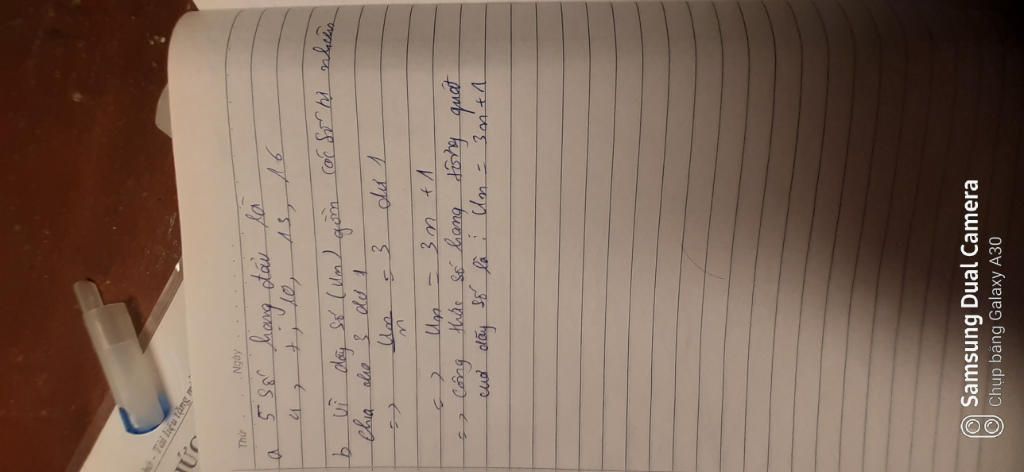 Thứ ... Ngày
a 5 số hạng đầu là
4, 7, 10, 13, 16
b Vì dãy số (Un) gồm các số tự nhiên
chia cho 3 dư 1
=> Un/n = 3 dư 1
=> Un = 3n + 1
=> Công thức số hạng tổng quát
của dãy số là: Un = 3n + 1
Samsung Dual Camera
Chụp bằng Galaxy A30